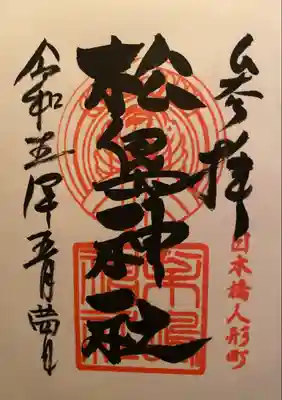 参拝
日本橋人形町
松島神社
令和五年五月